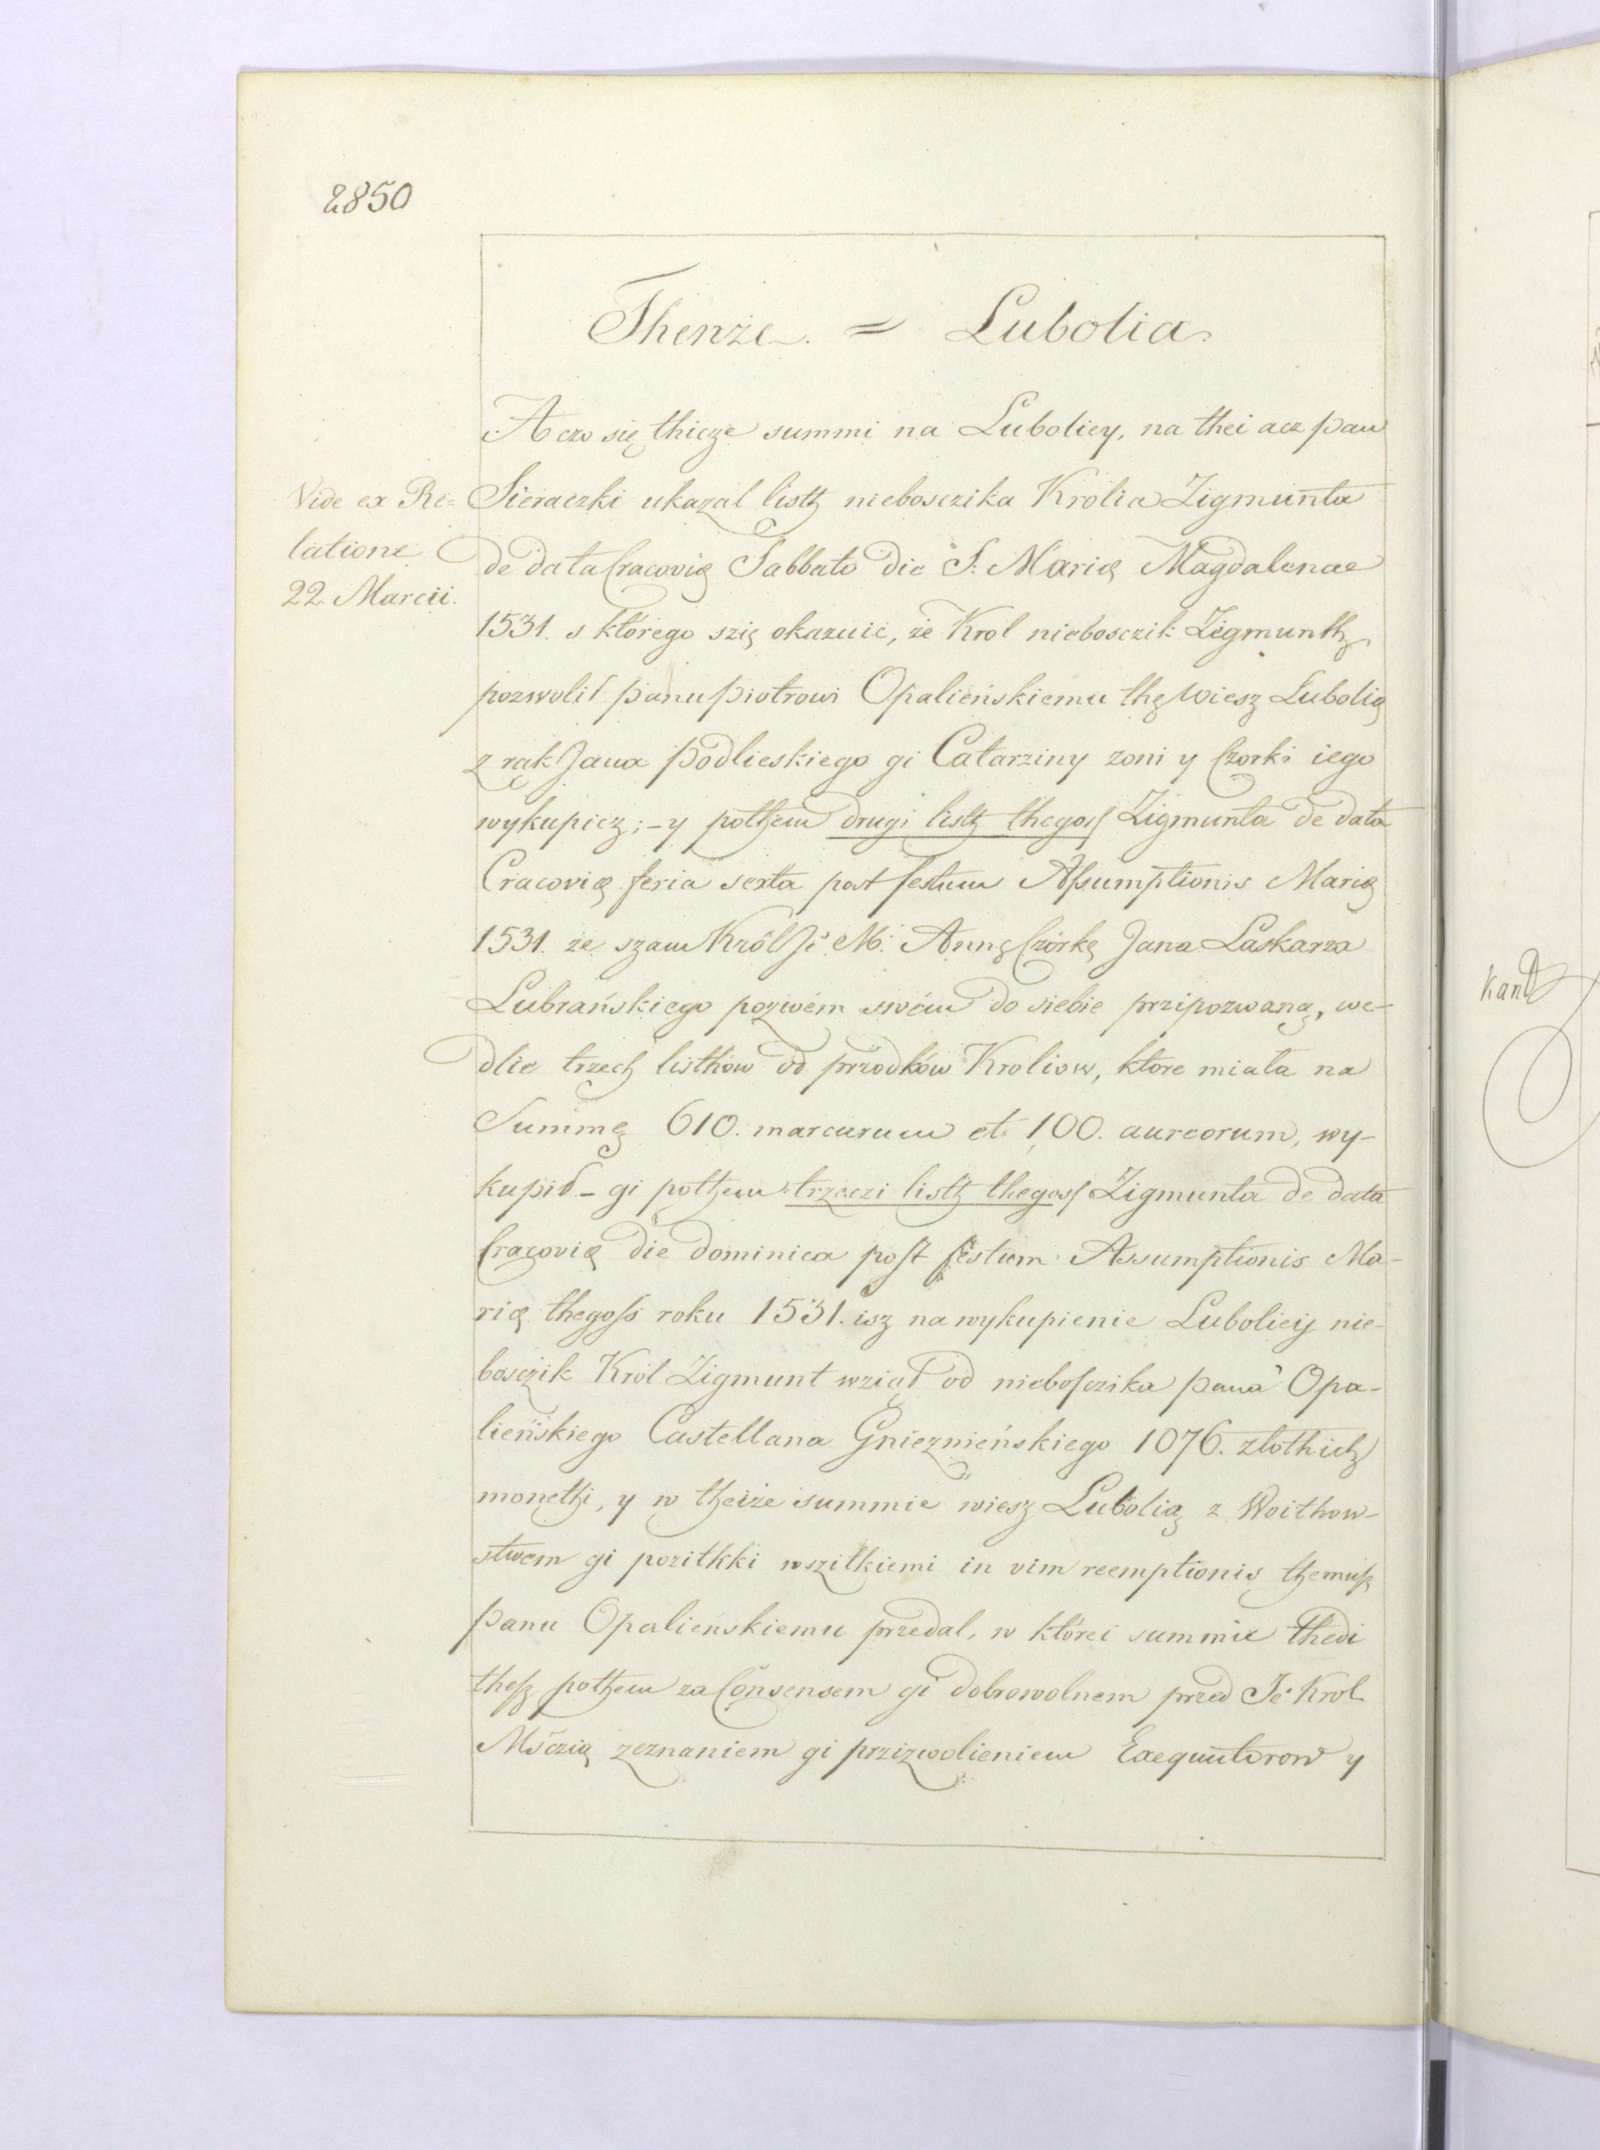 2850
Thenże = Lubolia
A czo się thicze summi na Luboliey, na thei acz pan
Vide ex Re=
latione
22 Marcii.
Sieraczki ukazal listh nieboszczika Krolia Zigmunta
de data Cracovię Sabbato die S. Marię Magdalenae
1531. s którego szię okazuie, że Krol niebosczik Zigmunth
pozwolił panu Piotrowi Opalieńskiemu thę wiesz Lubolią
z rąk Jana Podlieskiego gi Catarziny zoni y Czorki iego
wykupicz; – y pothem drugi listh thegoss Zigmunta de data
Cracovię feria sexta post festum Assumptionis Marię
1531. że szam Król Je M. Annę Czórkę Jana Laskarza
Lubrańskiego pozwem swém do siebie przipozwaną, we-
dlie trzech listhów od przodków Kroliow, które miała na
Summę 610. marcarum et 100. aureorum, wy-
kupił – gi pothem trzeczi listh thegoss Zigmunta de data
Cracovię die dominica post festum Assumptionis Ma-
rię thegoss roku 1531. isz na wykupienie Luboliey nie-
bosczik Król Zigmunt wziął od niebosczika pana Opa-
lieńskiego Castellana Gnieznieńskiego 1076. zlothich
monethi, y w theiże summie wiesz Lubolią z Woithow-
stwem gi pozitkki wszitkiemi in vim reemptionis themusz
Panu Opalienskiemu przedal, w którei summie thedi
thesz pothem za Consensem gi dobrowolnem przed Je Krol
Msczią zeznaniem gi przizwolieniem Exequutorow y